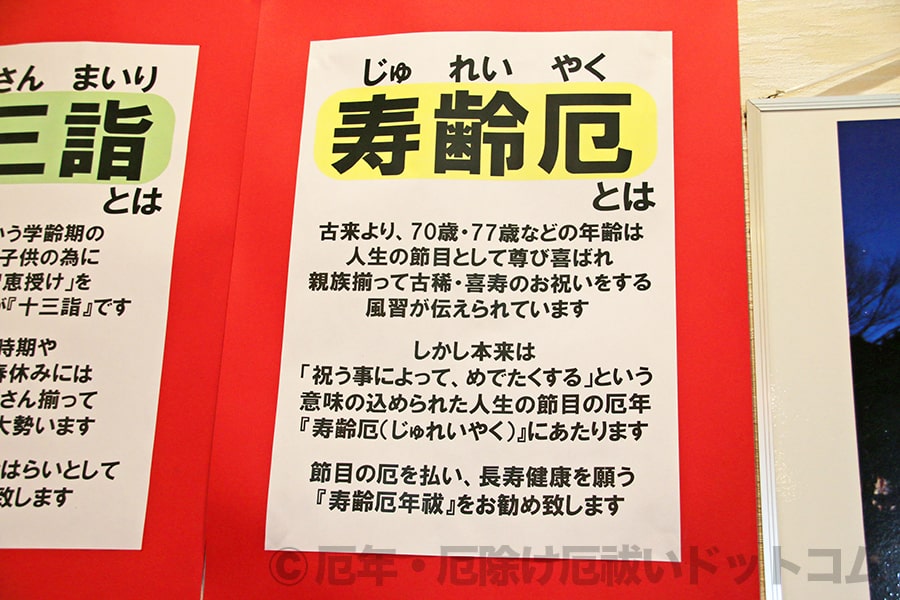 さん まいり
三詣
とは
いう学齢期の
子供の為に
恵授け」を
『十三詣』です
時期や
春休みには
さん揃って
大勢います
はらいとして
致します
じゅ れい やく
寿齢厄
とは
古来より、70歳・77歳などの年齢は
人生の節目として尊び喜ばれ
親族揃って古稀・喜寿のお祝いをする
風習が伝えられています
しかし本来は
「祝う事によって、めでたくする」という
意味の込められた人生の節目の厄年
『寿齢厄（じゅれいやく）』にあたります
節目の厄を払い、長寿健康を願う
『寿齢厄年祓』をお勧め致します
© 厄年・厄除け厄祓いドットコム